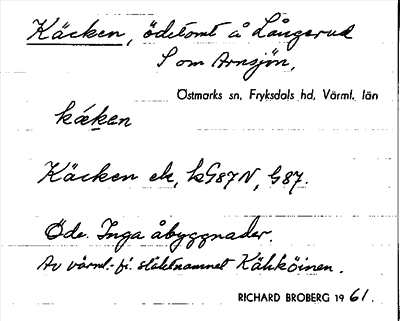 Käcken, ödetomt å Långerud
S om Arnsjön,
Östmarks sn, Fryksdals hd, Värml. län
kæken
Käcken ek, bG87N, G87.
Öde. Inga åbyggnader.
Av värml.-fi. släktnamnet Kähköinen.
RICHARD BROBERG 1961.